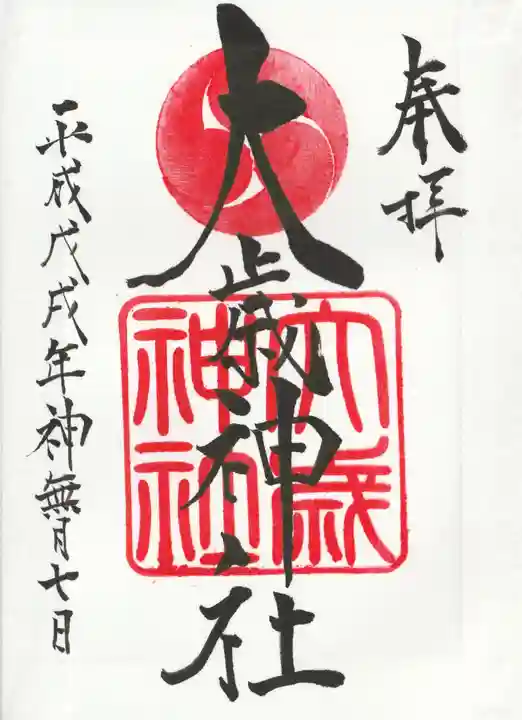 奉拝
大歳神社
大歳
神社
平成戊戌年神無月七日